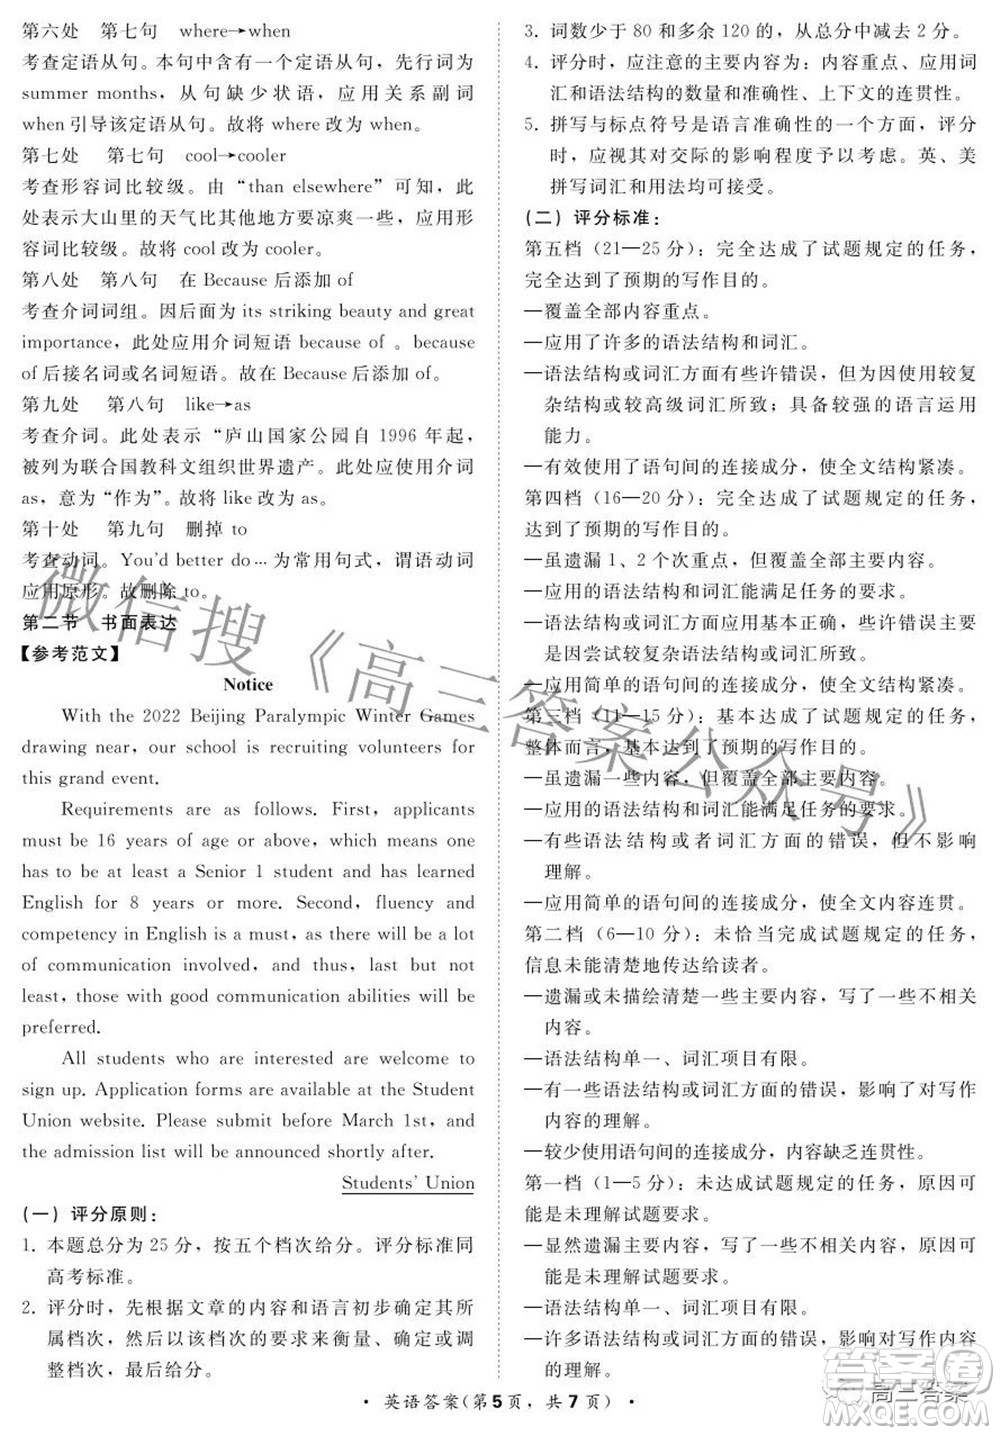 第六处　第七句　where→when
考查定语从句。本句中含有一个定语从句，先行词为
summer months，从句缺少状语，应用关系副词
when 引导该定语从句。故将 where 改为 when。
第七处　第七句　cool→cooler
考查形容词比较级。由“than elsewhere”可知，此
处表示大山里的天气比其他地方要凉爽一些，应用形
容词比较级。故将 cool 改为 cooler。
第八处　第八句　在 Because 后添加 of
考查介词词组。因后面为 its striking beauty and great
importance，此处应用介词短语 because of 。because
of 后接名词或名词短语。故在 Because 后添加 of。
第九处　第八句　like→as
考查介词。此处表示“庐山国家公园自 1996 年起，
被列为联合国教科文组织世界遗产。此处应使用介词
as，意为“作为”。故将 like 改为 as。
第十处　第九句　删掉 to
考查动词。You'd better do…为常用句式，谓语动词
应用原形。故删除 to。
第二节　书面表达
【参考范文】
Notice
With the 2022 Beijing Paralympic Winter Games
drawing near, our school is recruiting volunteers for
this grand event.
Requirements are as follows. First, applicants
must be 16 years of age or above, which means one
has to be at least a Senior 1 student and has learned
English for 8 years or more. Second, fluency and
competency in English is a must, as there will be a lot
of communication involved, and last but not
least, those with good communication abilities will be
preferred.
All students who are interested are welcome to
sign up. Application forms are available at the Student
Union website. Please submit before March 1st, and
the admission list will be announced shortly after.
Students' Union
（一）评分原则：
1. 本题总分为 25 分，按五个档次给分。评分标准同
高考标准。
2. 评分时，先根据文章的内容和语言初步确定其所
属档次，然后以该档次的要求来衡量、确定或调
整档次，最后给分。
3. 词数少于 80 和多余 120 的，从总分中减去 2 分。
4. 评分时，应注意的主要内容为：内容重点、应用词
汇和语法结构的数量和准确性、上下文的连贯性。
5. 拼写与标点符号是语言准确性的一个方面，评分
时，应视其对交际的影响程度予以考虑。英、美
拼写词汇和用法均可接受。
（二）评分标准：
第五档（21—25 分）：完全达成了试题规定的任务，
完全达到了预期的写作目的。
—覆盖全部内容重点。
—应用了许多的语法结构和词汇。
—语法结构或词汇方面有些许错误，但为因使用较复
杂结构或较高级词汇所致；具备较强的语言运用
能力。
—有效使用了语句间的连接成分，使全文结构紧凑。
第四档（16—20 分）：完全达成了试题规定的任务，
达到了预期的写作目的。
—虽遗漏 1、2 个次重点，但覆盖全部主要内容。
—应用的语法结构和词汇能满足任务的要求。
—语法结构或词汇方面应用基本正确，些许错误主要
是因尝试较复杂语法结构或词汇所致。
—应用简单的语句间的连接成分，使全文结构紧凑。
第三档（11—15 分）：基本达成了试题规定的任务，
整体而言，基本达到了预期的写作目的。
—虽遗漏一些内容，但覆盖全部主要内容。
—应用的语法结构和词汇能满足任务的要求。
—有些语法结构或者词汇方面的错误，但不影响
理解。
—应用简单的语句间的连接成分，使全文内容连贯。
第二档（6—10 分）：未恰当完成试题规定的任务，
信息未能清楚地传达给读者。
—遗漏或未描绘清楚一些主要内容，写了一些不相关
内容。
—语法结构单一、词汇项目有限。
—有一些语法结构或词汇方面的错误，影响了对写作
内容的理解。
—较少使用语句间的连接成分，内容缺乏连贯性。
第一档（1—5 分）：未达成试题规定的任务，原因可
能是未理解试题要求。
—显然遗漏主要内容，写了一些不相关内容，原因可
能是未理解试题要求。
—语法结构单一、词汇项目有限。
—许多语法结构或词汇方面的错误，影响对写作内容
的理解。
· 英语答案（第 5 页，共 7 页）·
微信搜《高三答案公众号》
高三答案
答案圈
MXQE.COM